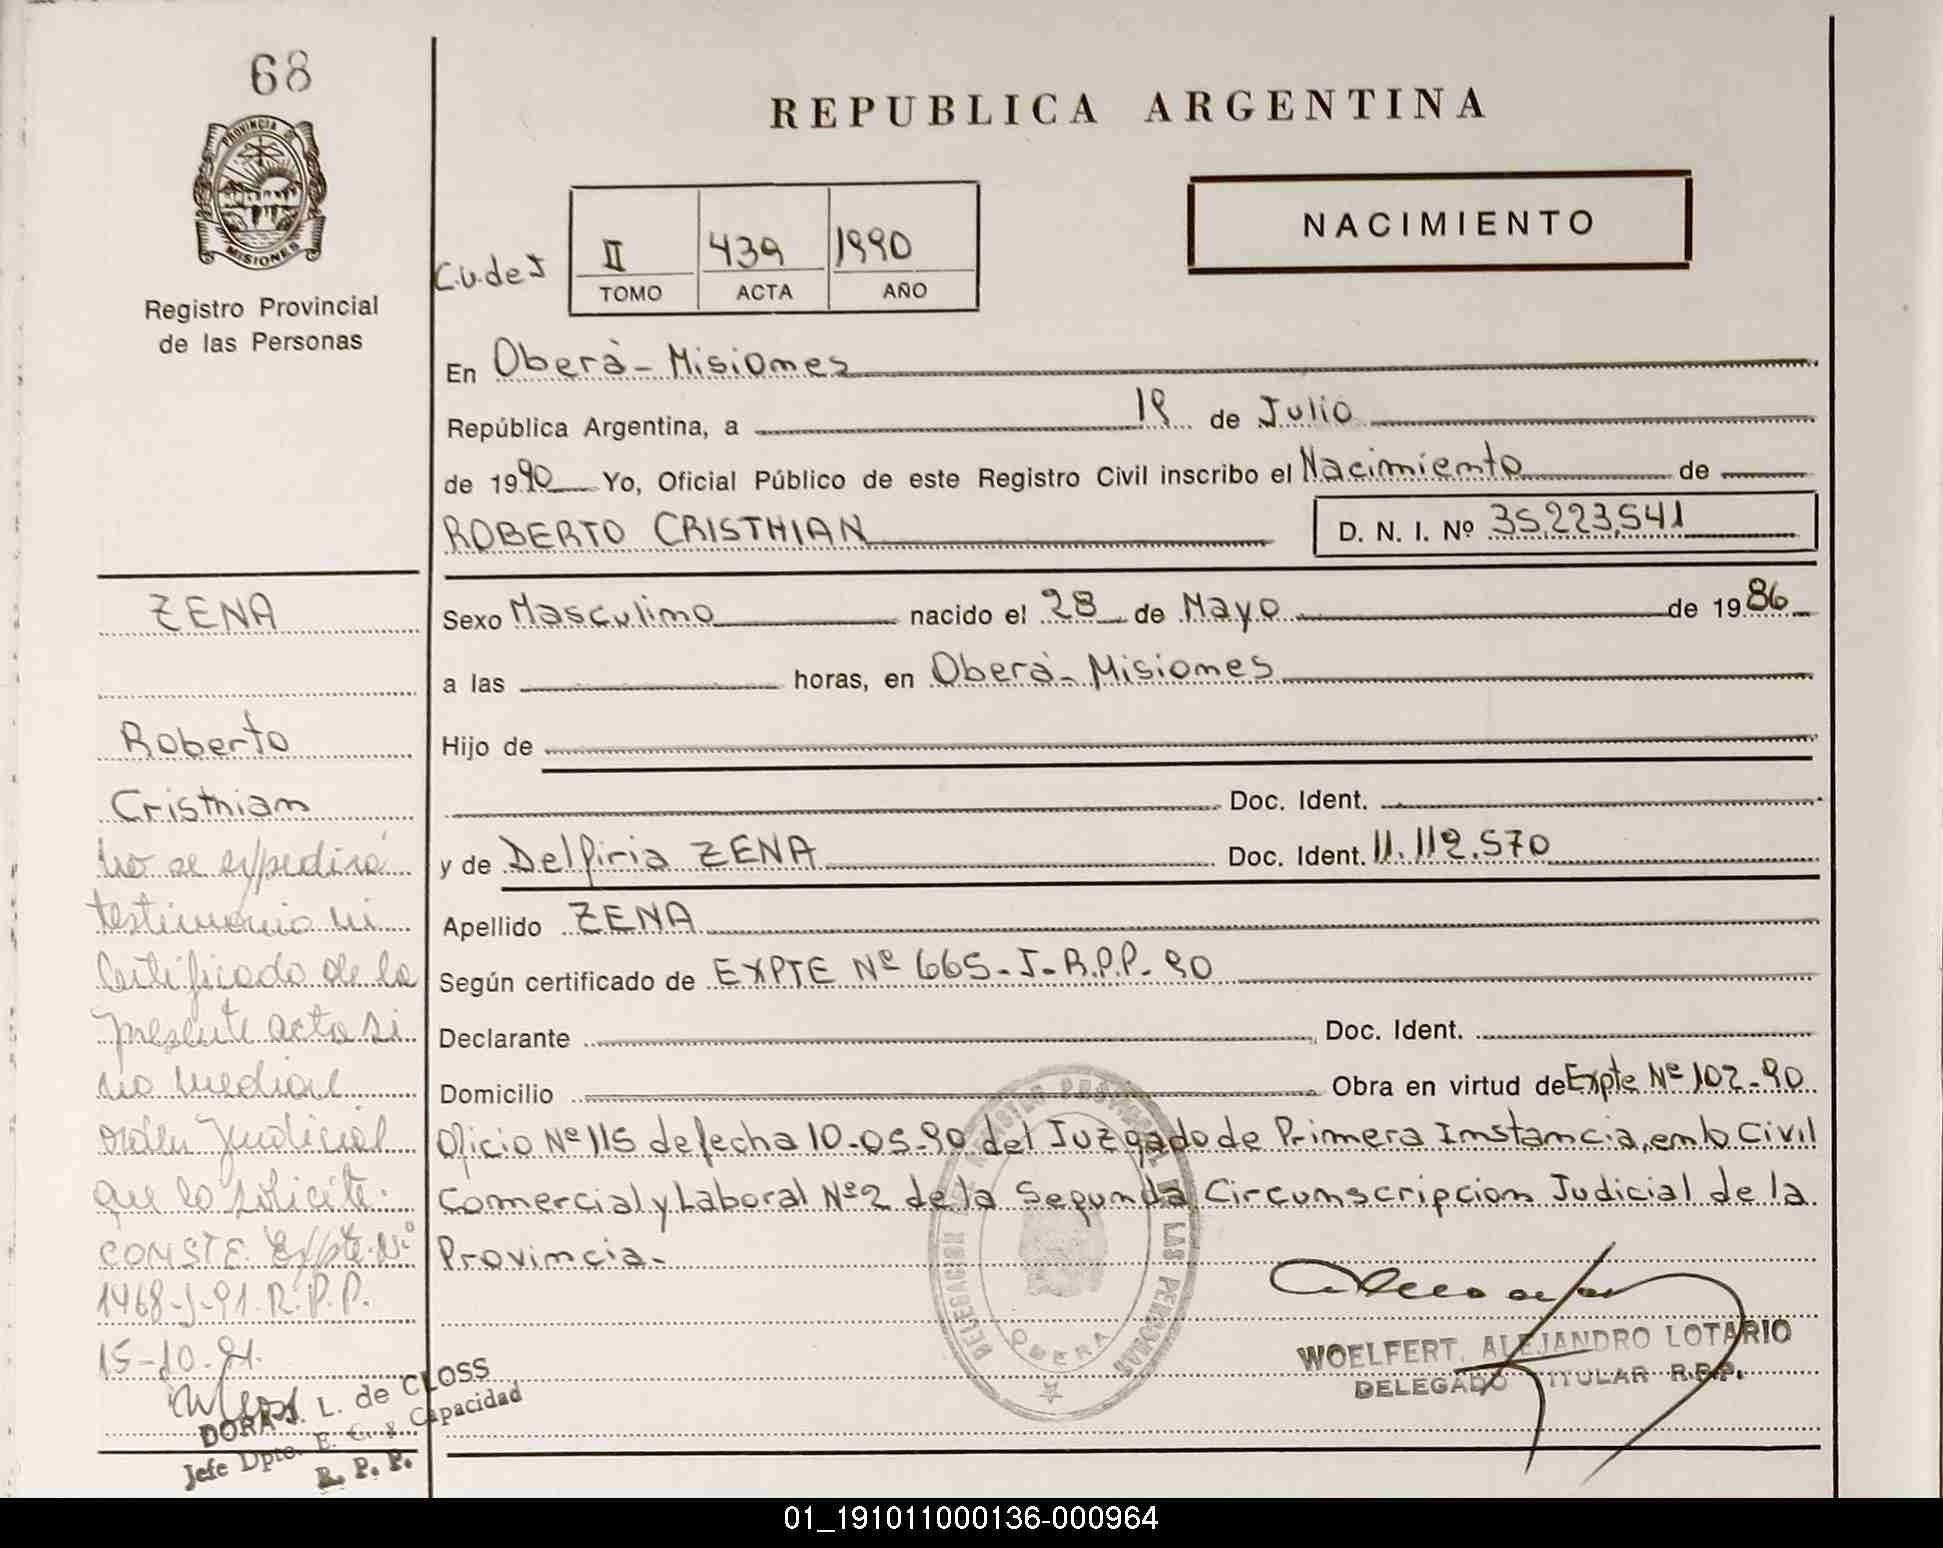 68
PROVINCIA DE
MISIONES
Registro Provincial
de las Personas
REPUBLICA ARGENTINA
NACIMIENTO
C.u.de J
II 439 1990
TOMO ACTA AÑO
En Oberá - Misiones
República Argentina, a 18 de Julio
de 1990 Yo, Oficial Público de este Registro Civil inscribo el Nacimiento de
ROBERTO CRISTHIAN D. N. I. Nº 35.223.541
Sexo Masculino nacido el 28 de Mayo de 1986
a las horas, en Oberá - Misiones
Hijo de
Doc. Ident.
y de Delfiria ZENA Doc. Ident. 11.112.570
Apellido ZENA
Según certificado de EXPTE Nº 665-J-R.P.P-90
Declarante Doc. Ident.
Domicilio Obra en virtud de Expte Nº 102-90
Oficio Nº 115 de fecha 10-05-90 del Juzgado de Primera Instancia, en lo Civil
Comercial y Laboral Nº 2 de la Segunda Circunscripcion Judicial de la
Provincia.-
ZENA
Roberto
Cristhian
No se expedirá
testimonio ni
Certificado de la
presente acta si
no mediare
orden Judicial
que lo solicite.
CONSTE. Expte. Nº
1468-J-91. R.P.P.
15-10-91.
DORA L. de CLOSS
Jefe Dpto. E. C. y Capacidad
R. P. P.
DELEGACION DEL REGISTRO PROVINCIAL DE LAS PERSONAS
OBERA
WOELFERT, ALEJANDRO LOTARIO
DELEGADO TITULAR R.P.P.
01_191011000136-000964